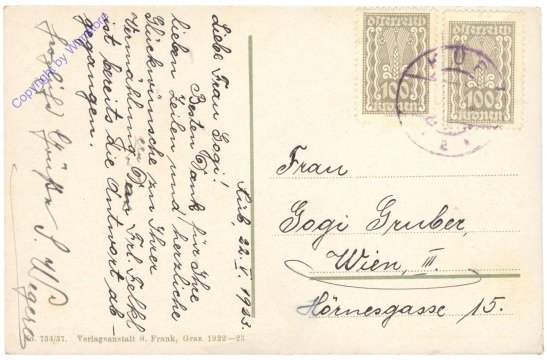 Küb, 22. V. 1923.
Liebe Frau Gogi!
Besten Dank für Ihre
lieben Zeilen und herzliche
Glückwünsche zu Ihrer
Vermählung. Frl.
ist bereits die Antwort ab-
gegangen.
Grüße
österreich
100
kronen
österreich
100
kronen
KÜB
Frau
Gogi Gruber,
Wien, III.
Hörnesgasse 15.
733/37. Verlagsanstalt S. Frank, Graz 1922—23
Copyright by